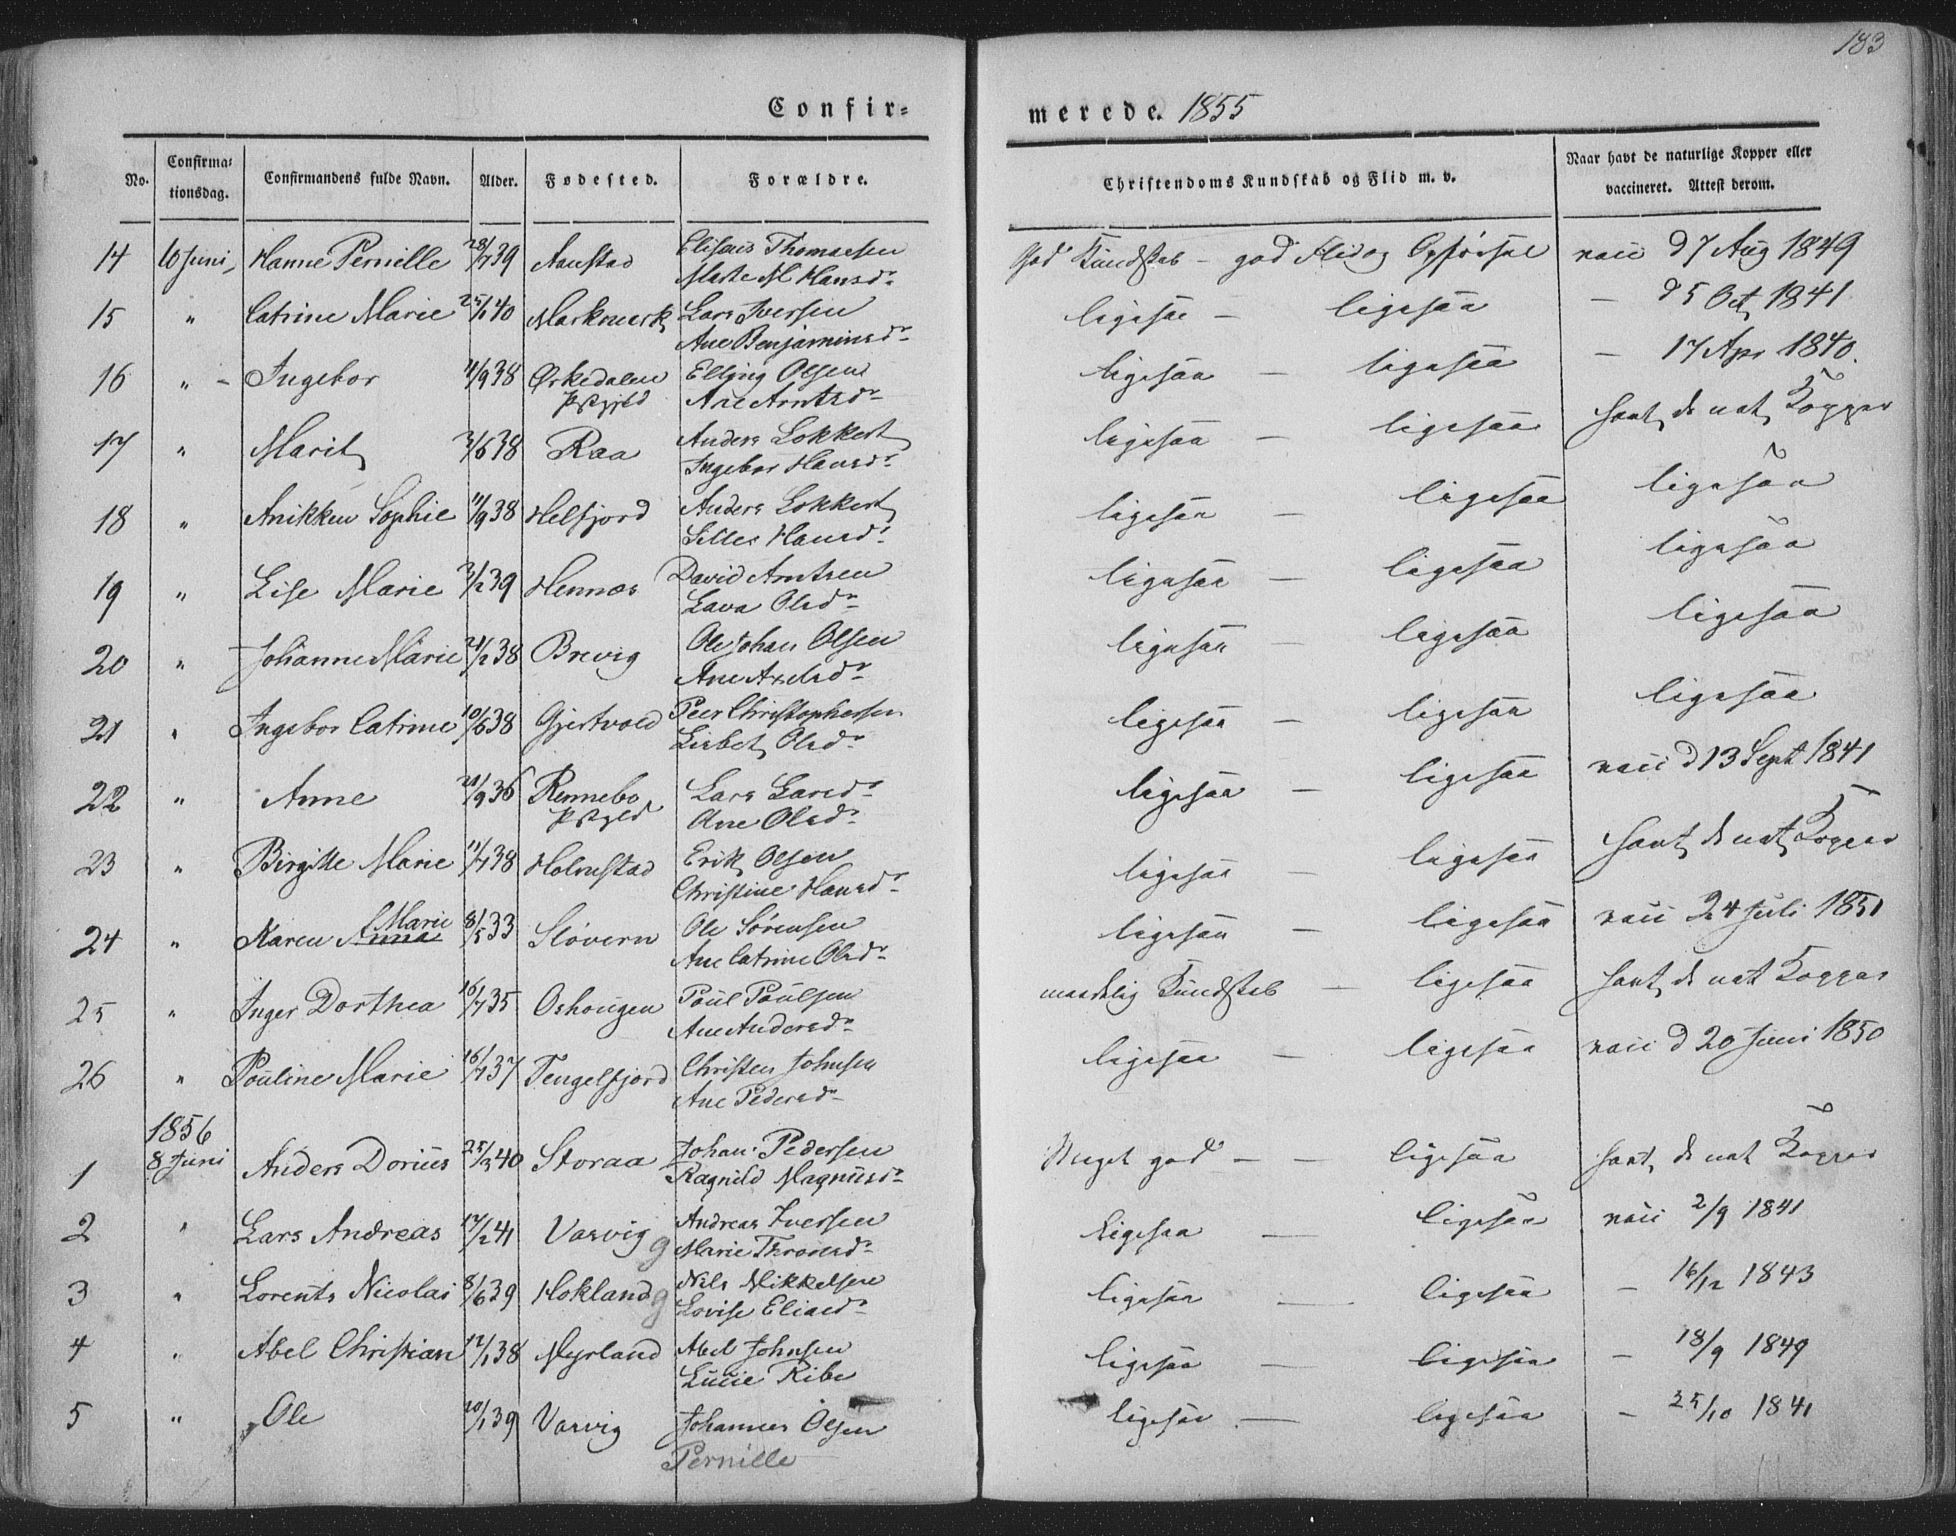 183
Confir= merede. 1855
No. Confirmationsdag. Confirmandens fulde Navn. Alder. Fødested. Forældre. Christendoms Kundskab og Flid m. v. Naar havt de naturlige Kopper eller vaccineret. Attest derom.
14 10 Juni, Hanne Pernille 28/7 39 Aanstad Elisæus Thomassen God Kundskab - god Flid og Opførsel vacc d 7 Aug 1849
Marte M Hansdr
15 " Catrine Marie 25/1 40 Markmerk Lars Iversen ligesaa - ligesaa - d 5 Oct 1841
Ane Benjaminsdr
16 " - Ingebor 11/9 38 Ørkedalen Elling Olsen ligesaa - ligesaa - 17 Apr 1840.
Pstgjeld Ane Arntsdr
17 " Marit 3/6 38 Raa Anders Lokkert ligesaa - ligesaa havt de nat Kopper
Ingebor Hansdr
18 " Anikken Sophie 11/9 38 Helfjord Anders Lokkert ligesaa - ligesaa ligesaa
Silles Hansdr
19 " Lise Marie 3/2 39 Hennes David Arntsen ligesaa - ligesaa ligesaa
Lava Olsdr
20 " Johanne Marie 21/2 38 Brevig Ole Johan Olsen ligesaa - ligesaa ligesaa
Ane Axelsdr
21 " Ingebor Catrine 10/6 38 Gjertvold Peer Christophersen ligesaa - ligesaa ligesaa
Lisbet Olsdr
22 " Anne 21/9 36 Rennebo Lars Larsdr ligesaa - ligesaa vacc d 13 Sept 1841
Pstgjeld Ane Olsdr
23 " Birgitte Marie 11/7 38 Holmstad Erik Olsen ligesaa - ligesaa havt de nat Kopper
Christine Hansdr
24 " Karen Anna Marie 8/5 33 Sløvern Ole Sørensen ligesaa - ligesaa vacc 24 Juli 1851
Ane Catrine Olsdr
25 " Inger Dorthea 16/7 35 Oshougen Poul Poulsen maadelig Kundskab - ligesaa havt de nat Kopper
Ane Andersdr
26 " Pouline Marie 16/7 37 Tengelfjord Christen Johnsen ligesaa - ligesaa vacc d 20 Juni 1850
Ane Pedersdr
1856
1 8 Juni Anders Dorius 25/3 40 Storaa Johan Pedersen Meget god - - ligesaa havt de nat Kopper
Ragnild Magnusdr
2 " Lars Andreas 17/2 41 Vasvig g Andreas Iversen ligesaa - ligesaa vacc 2/9 1841
Marie Thronsdr
3 " Lorents Nicolai 8/6 39 Hokland g Nils Mikkelsen ligesaa - ligesaa - 16/12 1843
Lovise Eliasdr
4 " Abel Christian 12/1 38 Myrland Abel Johnsen ligesaa - ligesaa - 18/9 1849
Lucie Ribe
5 " Ole 20/1 39 Vasvig Johannes Olsen ligesaa - ligesaa - 25/10 1841
Pernille